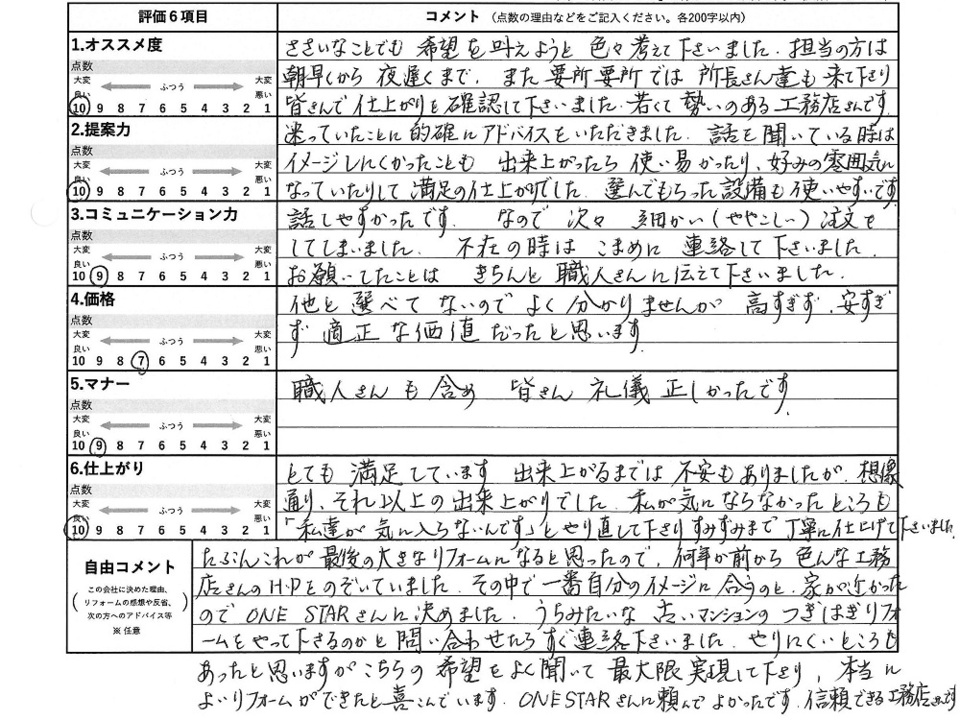 評価６項目
コメント （点数の理由などをご記入ください。各200字以内）
1.オススメ度
点数
大変良い ふつう 大変悪い
10 9 8 7 6 5 4 3 2 1
ささいなことでも 希望を叶えようと 色々考えて下さいました. 担当の方は
朝早くから 夜遅くまで, また要所要所では 所長さん達も来て下り
皆さんで仕上がりを確認して下さいました. 若くて勢いのある工務店さんです.
2.提案力
点数
大変良い ふつう 大変悪い
10 9 8 7 6 5 4 3 2 1
迷っていたことに 的確にアドバイスをいただきました. 話を聞いている時は
イメージしにくかったことも 出来上がったら 使い易かったり, 好みの雰囲気に
なっていたりして 満足の仕上がりでした. 選んでもらった設備も使いやすいです
3.コミュニケーション力
点数
大変良い ふつう 大変悪い
10 9 8 7 6 5 4 3 2 1
話しやすかったです. なので 次々 細かい(ややこしい)注文を
してしまいました. 不在の時は こまめに 連絡して下さいました
お願いしたことは きちんと 職人さんに伝えて下さいました.
4.価格
点数
大変良い ふつう 大変悪い
10 9 8 7 6 5 4 3 2 1
他と 選べて ないので よく分かりませんが 高すぎず, 安すぎ
ず 適正な価値だったと思います.
5.マナー
点数
大変良い ふつう 大変悪い
10 9 8 7 6 5 4 3 2 1
職人さんも含め 皆さん 礼儀正しかったです.
6.仕上がり
点数
大変良い ふつう 大変悪い
10 9 8 7 6 5 4 3 2 1
とても 満足しています 出来上がるまでは 不安もありましたが, 想像
通り, それ以上の出来上がりでした. 私が気にならなかったところも
「私達が気に入らないんです」とやり直して下りすみずみまで丁寧に仕上げて下さいました.
自由コメント
（この会社に決めた理由、
リフォームの感想や反省、
次の方へのアドバイス等）
※ 任意
たぶんこれが最後の大きなリフォームになると思ったので, 何年か前から 色んな工務
店さんのH・Pをのぞいていました. その中で一番自分のイメージに合うのと, 家が近かった
ので ONE STARさんに決めました. うちみたいな 古いマンションの つぎはぎリフォ
ームをやって下さるのかと問い合わせたらすぐ連絡下さいました. やりにくいところも
あったと思いますがこちらの希望をよく聞いて 最大限実現して下り, 本当に
よいリフォームができたと喜こんでいます. ONE STARさんに頼んでよかったです. 信頼できる工務店さんです